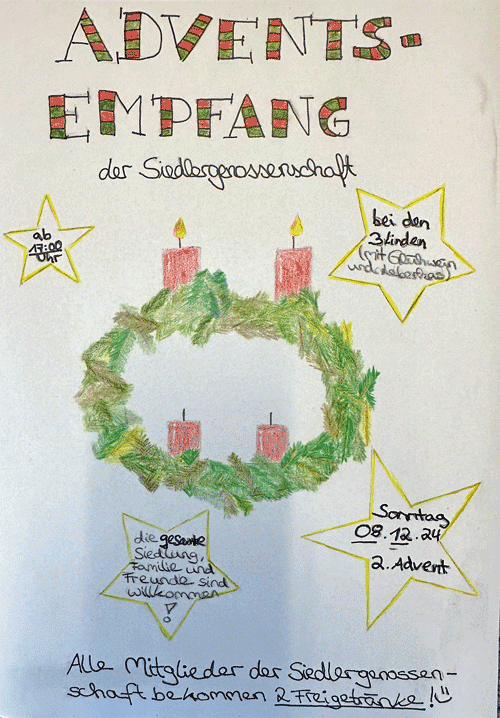 ADVENTS-
EMPFANG
der Siedlergenossenschaft
ab
17:00
Uhr
bei den
3 Linden
(mit Glühwein
und Leberkas)
Sonntag
08.12.24
2. Advent
die gesamte
Siedlung,
Familie und
Freunde sind
willkommen
!
Alle Mitglieder der Siedlergenossen-
schaft bekommen 2 Freigetränke!